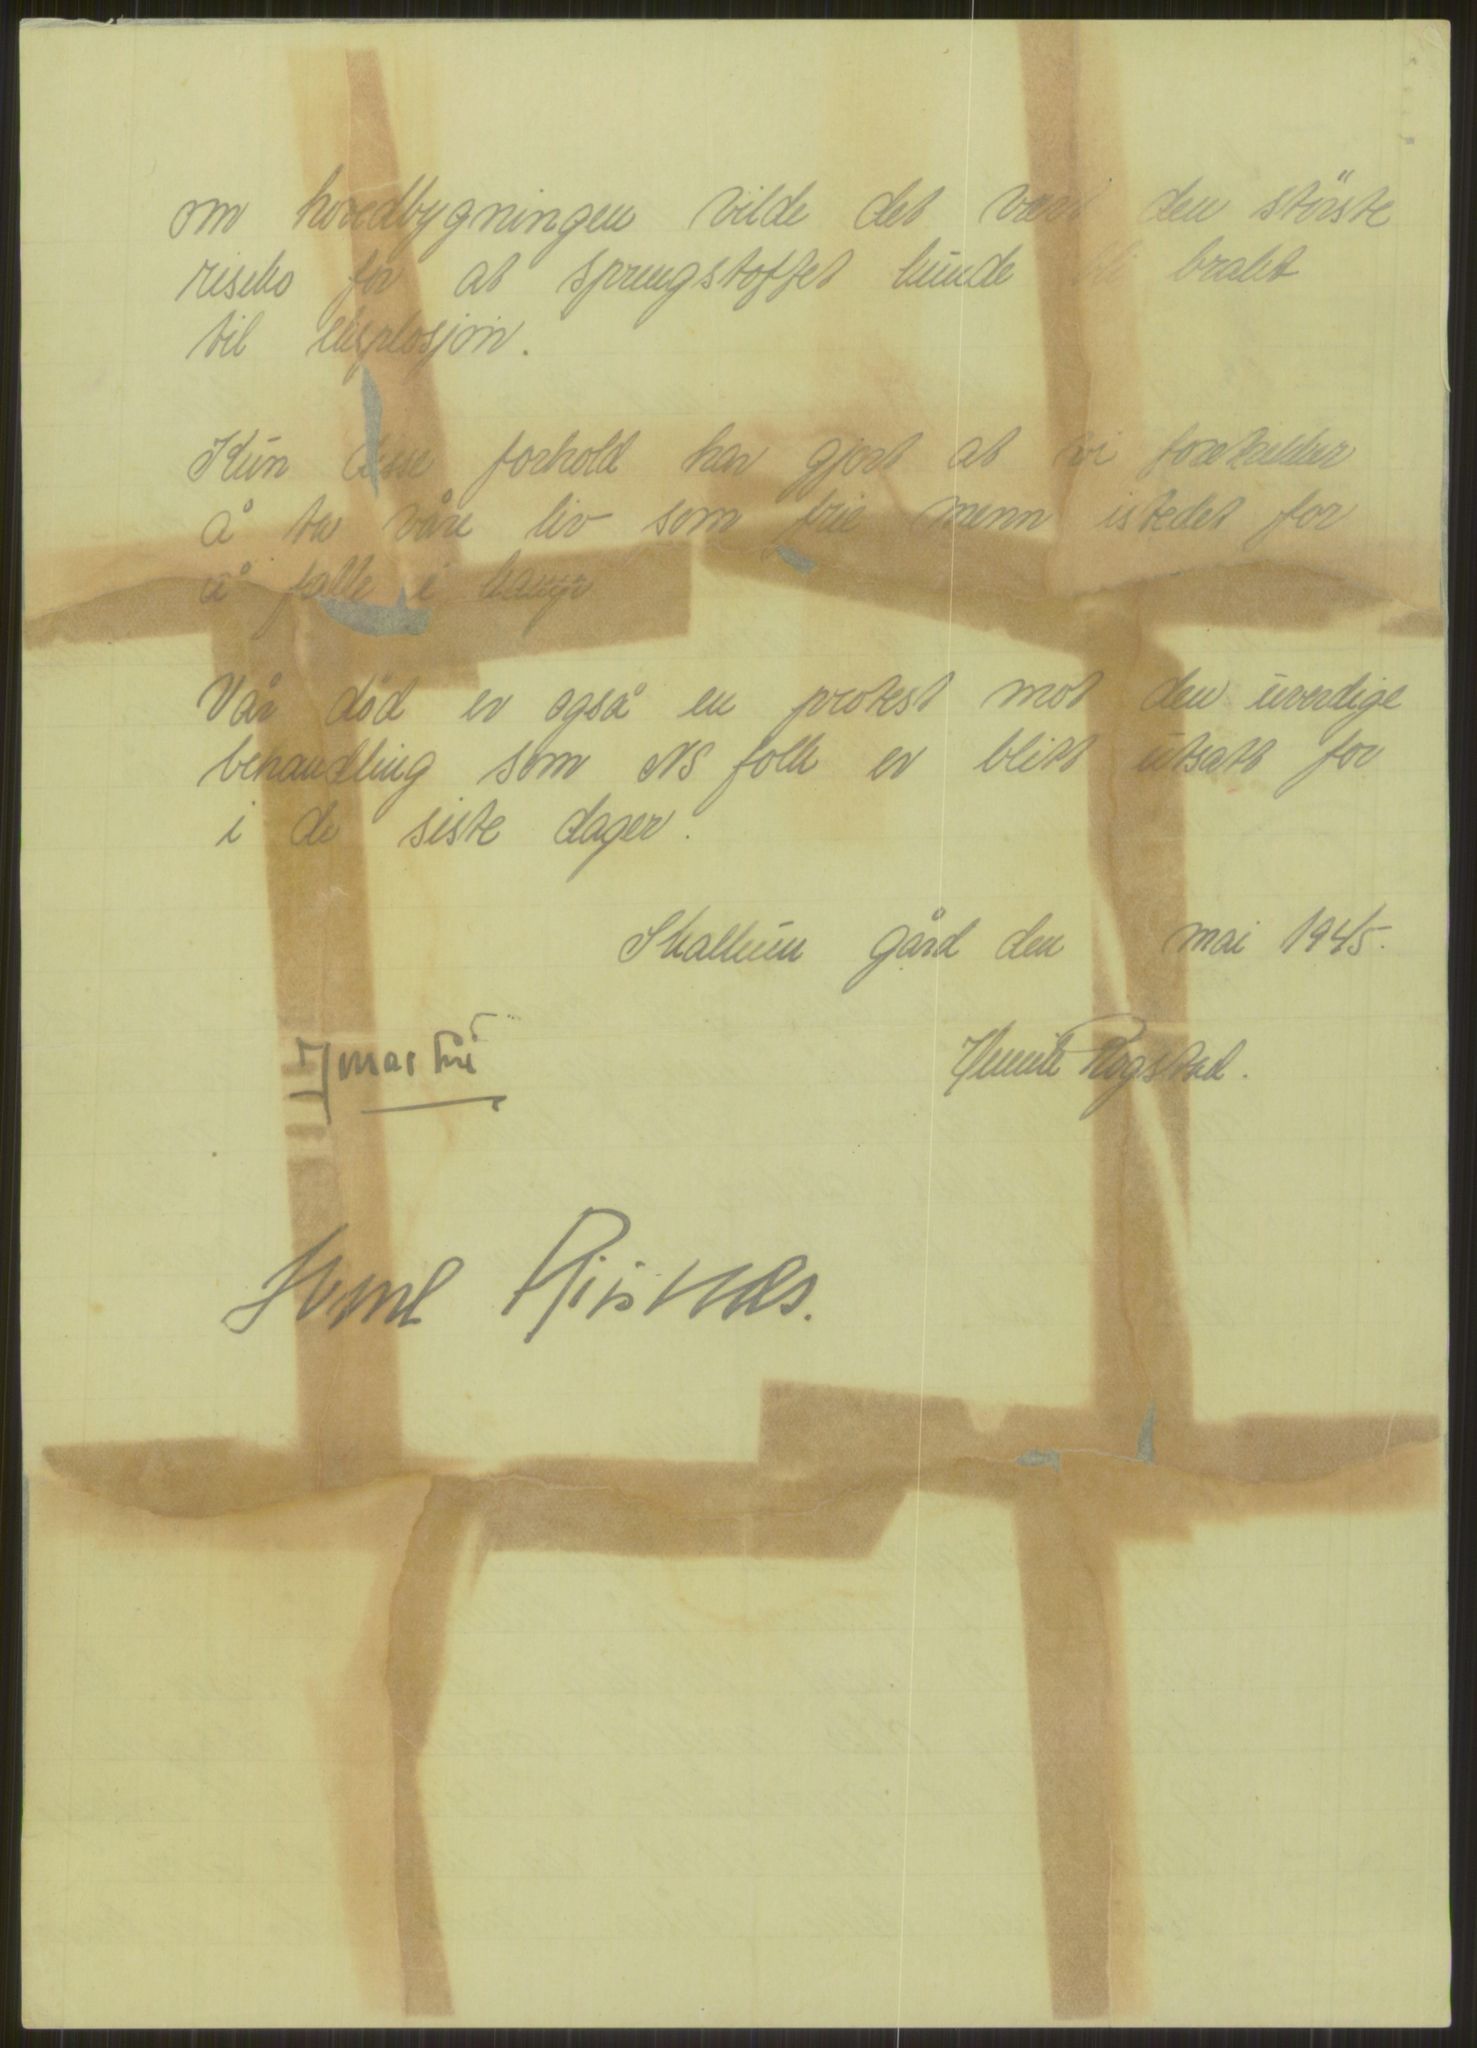 om hovedbygningen vilde det vært den störste
risiko for at sprengstoffet kunde bli brakt
til eksplosjon.
Kun disse forhold har gjort at vi foretrekker
å ta våre liv som frie menn istedet for
å falle i kamp
Vår död er også en protest mot den uverdige
behandling som NS folk er blitt utsatt for
i de siste dager.
Skallum gård den mai 1945.
Henrik Rogstad.
Riisnæs.